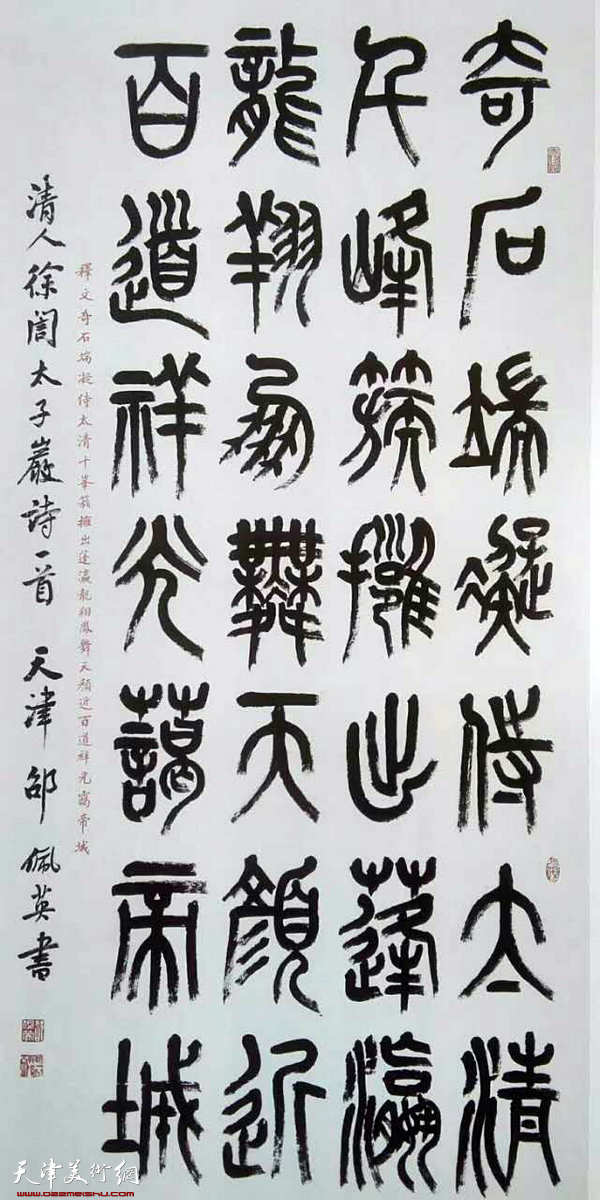 奇石端凝侍太清
千峰簇擁出蓬瀛
龍翔鳳舞天顏近
百道祥光藹帝城
釋文奇石端凝侍太清千峯簇擁出蓬瀛龍翔鳳舞天顏近百道祥光靄帝城
清人徐誾太子巖詩一首 天津邵佩英書
天津美術網
www.022meishu.com